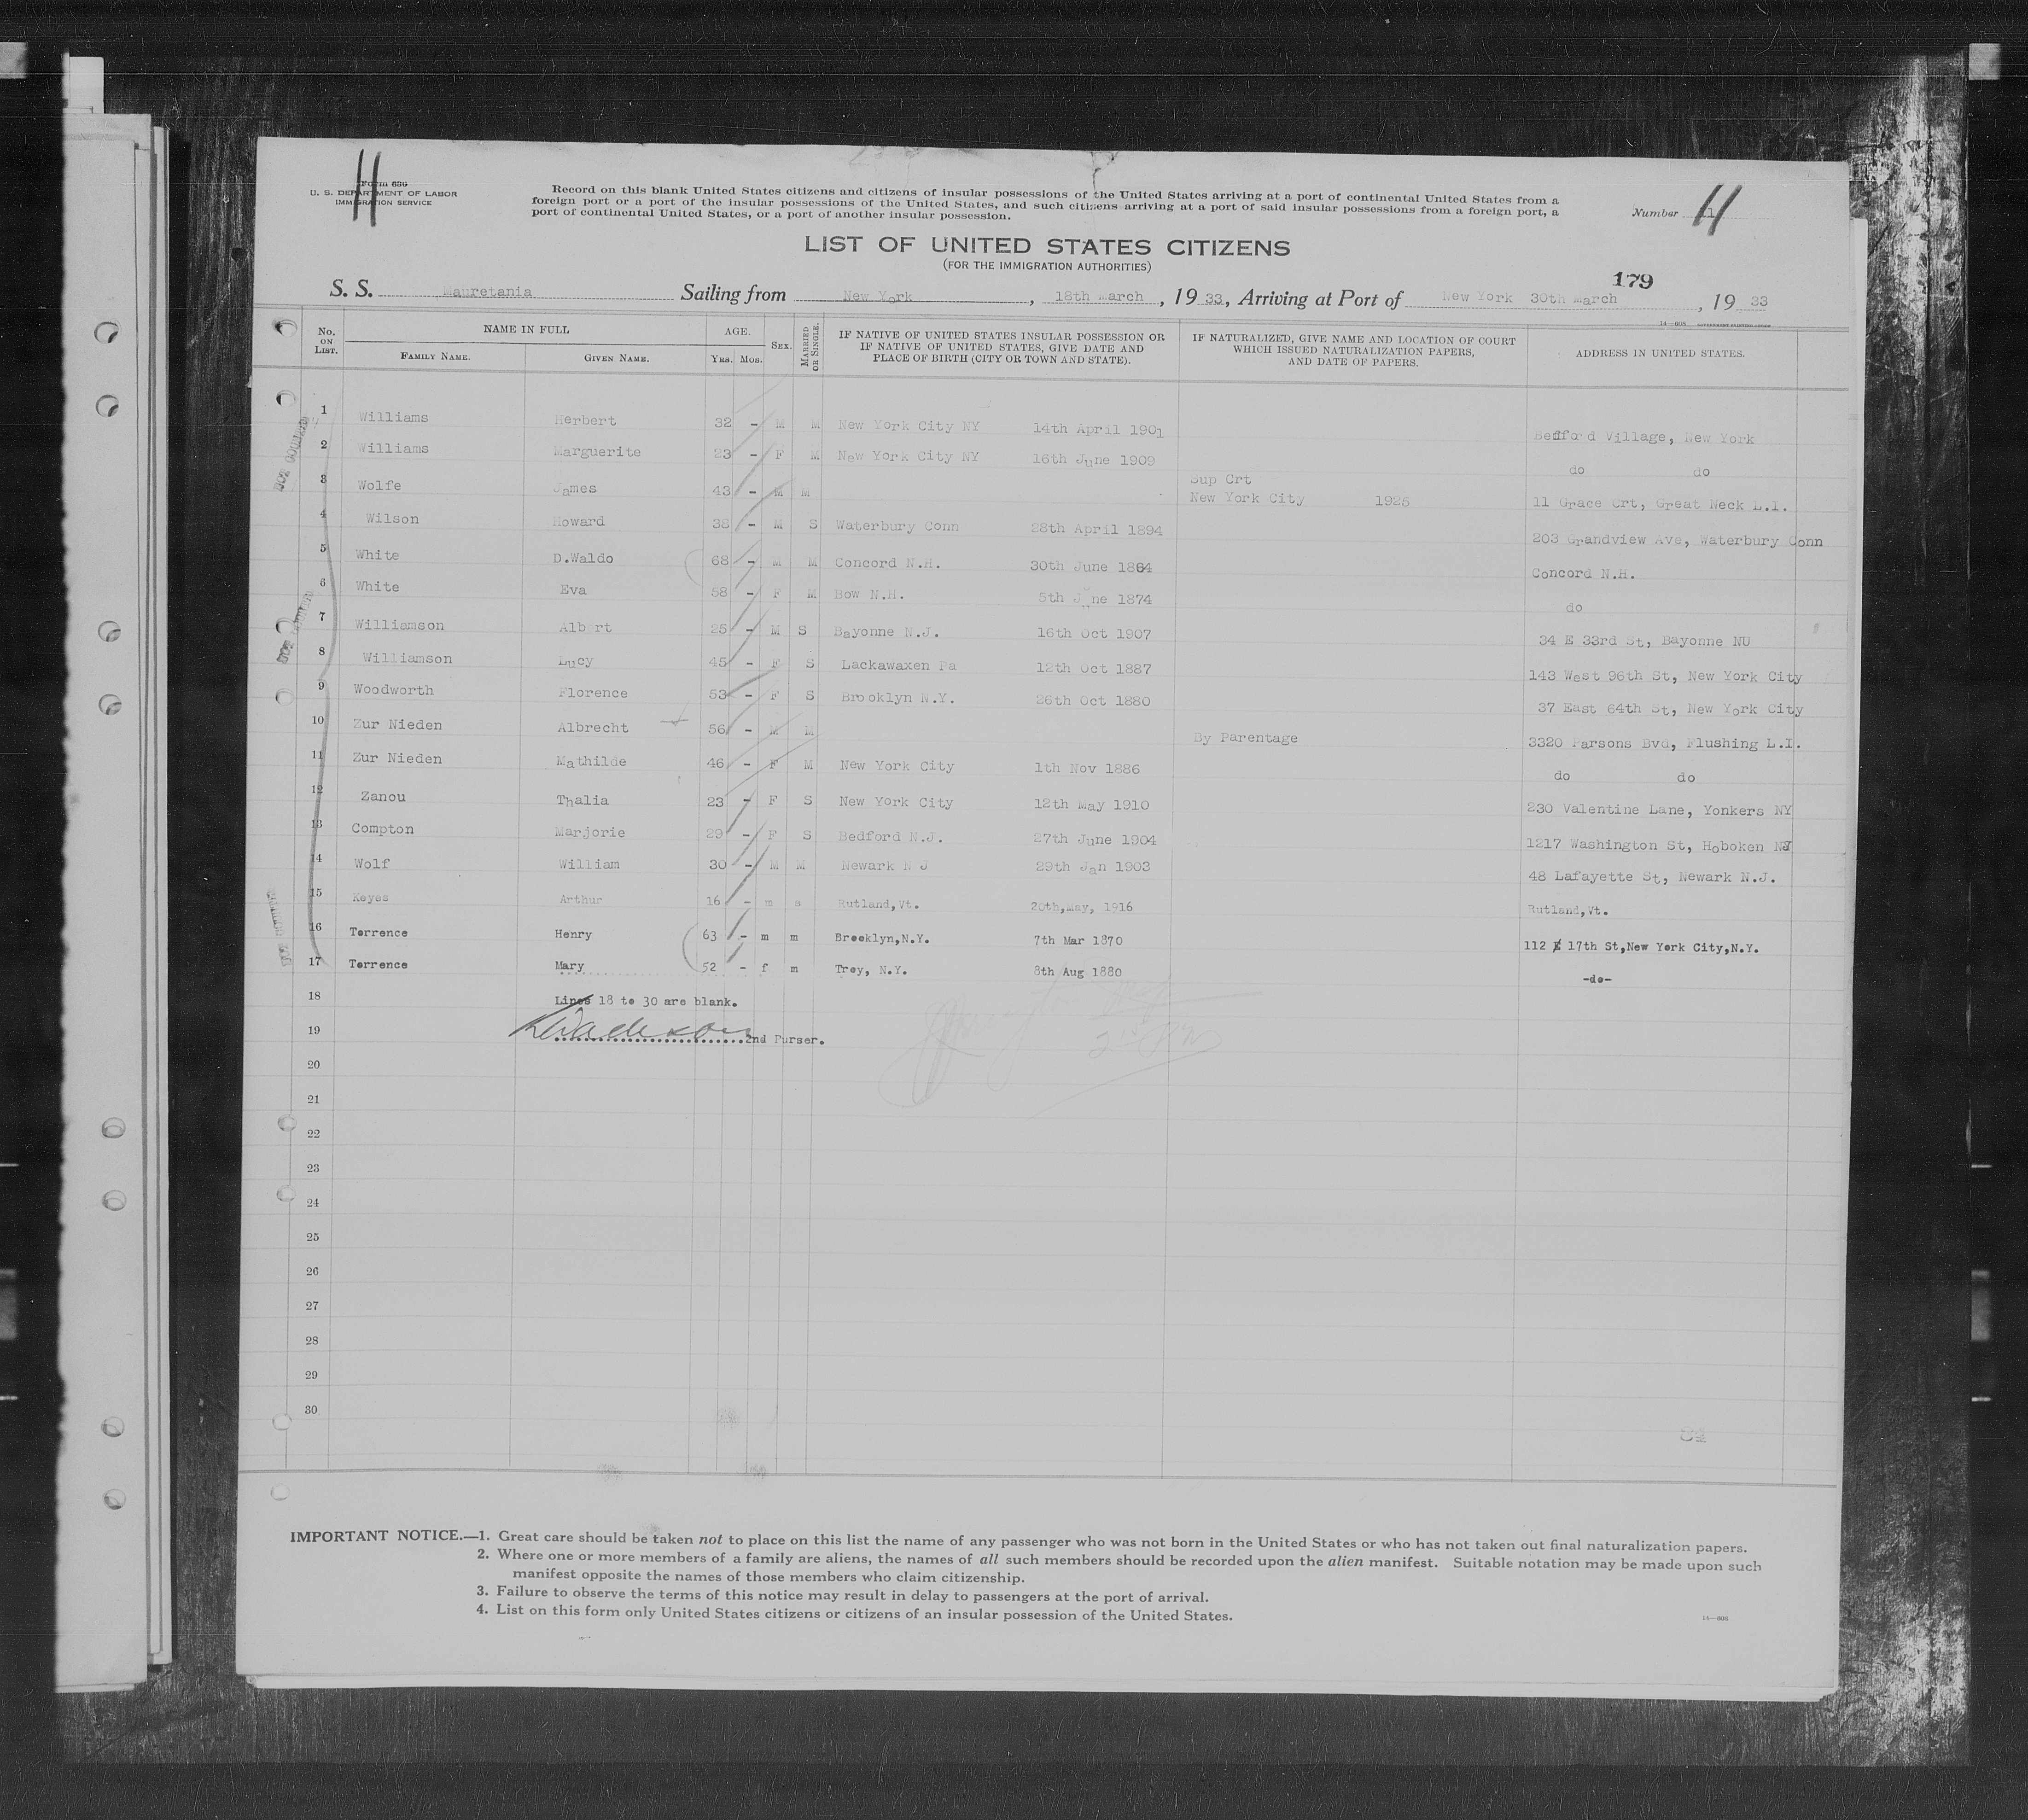 11
Form 630
U. S. DEPARTMENT OF LABOR
IMMIGRATION SERVICE
Record on this blank United States citizens and citizens of insular possessions of the United States arriving at a port of continental United States from a
foreign port or a port of the insular possessions of the United States, and such citizens arriving at a port of said insular possessions from a foreign port, a
port of continental United States, or a port of another insular possession.
Number 11
LIST OF UNITED STATES CITIZENS
(FOR THE IMMIGRATION AUTHORITIES)
179
S. S. Mauretania Sailing from New York, 18th March, 1933, Arriving at Port of New York 30th March, 1933
14—608 GOVERNMENT PRINTING OFFICE
No. ON LIST. NAME IN FULL AGE. SEX. MARRIED OR SINGLE. IF NATIVE OF UNITED STATES INSULAR POSSESSION OR IF NATIVE OF UNITED STATES, GIVE DATE AND PLACE OF BIRTH (CITY OR TOWN AND STATE). IF NATURALIZED, GIVE NAME AND LOCATION OF COURT WHICH ISSUED NATURALIZATION PAPERS, AND DATE OF PAPERS. ADDRESS IN UNITED STATES.
FAMILY NAME. GIVEN NAME. YRS. MOS.
1 Williams Herbert 32 - M M New York City NY 14th April 1901 Bedford Village, New York
2 Williams Marguerite 23 - F M New York City NY 16th June 1909 do do
3 Wolfe James 43 - M M Sup Crt New York City 1925 11 Grace Crt, Great Neck L.I.
4 Wilson Howard 38 - M S Waterbury Conn 28th April 1894 203 Grandview Ave, Waterbury Conn
5 White D.Waldo 68 - M M Concord N.H. 30th June 1864 Concord N.H.
6 White Eva 58 - F M Bow N.H. 5th June 1874 do
7 Williamson Albert 25 - M S Bayonne N.J. 16th Oct 1907 34 E 33rd St, Bayonne NU
8 Williamson Lucy 45 - F S Lackawaxen Pa 12th Oct 1887 143 West 96th St, New York City
9 Woodworth Florence 53 - F S Brooklyn N.Y. 26th Oct 1880 37 East 64th St, New York City
10 Zur Nieden Albrecht 56 - M M By Parentage 3320 Parsons Bvd, Flushing L.I.
11 Zur Nieden Mathilde 46 - F M New York City 1th Nov 1886 do do
12 Zanou Thalia 23 - F S New York City 12th May 1910 230 Valentine Lane, Yonkers NY
13 Compton Marjorie 29 - F S Bedford N.J. 27th June 1904 1217 Washington St, Hoboken NJ
14 Wolf William 30 - M M Newark N J 29th Jan 1903 48 Lafayette St, Newark N.J.
15 Keyes Arthur 16 - m s Rutland,Vt. 20th,May, 1916 Rutland,Vt.
16 Torrence Henry 63 - m m Brooklyn,N.Y. 7th Mar 1870 112 E 17th St,New York City,N.Y.
17 Torrence Mary 52 - f m Troy, N.Y. 8th Aug 1880 -do-
18 Lines 18 to 30 are blank.
19 2nd Purser.
20
21
22
23
24
25
26
27
28
29
30
IMPORTANT NOTICE.—1. Great care should be taken not to place on this list the name of any passenger who was not born in the United States or who has not taken out final naturalization papers.
2. Where one or more members of a family are aliens, the names of all such members should be recorded upon the alien manifest. Suitable notation may be made upon such
manifest opposite the names of those members who claim citizenship.
3. Failure to observe the terms of this notice may result in delay to passengers at the port of arrival.
4. List on this form only United States citizens or citizens of an insular possession of the United States.
14—608